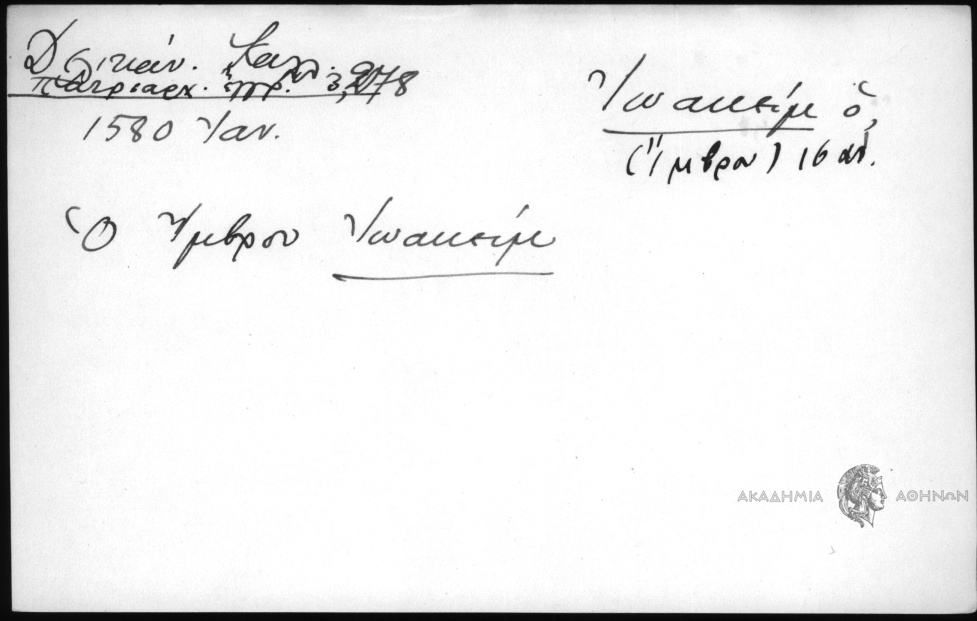 Δελικάν. Καλλ.
πατριαρχ. ἔγγρ. 3, 278
1580 Ἰαν.
Ἰωακεὶμ ὁ,
(Ἴμβρου) 16 αἰ.
Ὁ Ἴμβρου Ἰωακεὶμ
ΑΚΑΔΗΜΙΑ ΑΘΗΝΩΝ